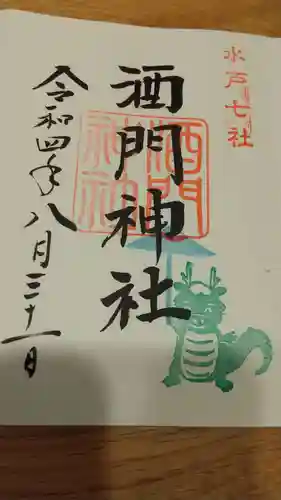 水戸七社
酒門神社
酒門
神社
令和四年八月三十一日